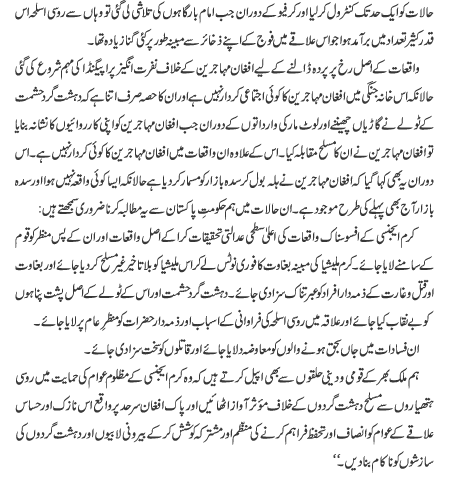 حالات کو ایک حد تک کنٹرول کر لیا اور کرفیو کے دوران جب امام بارگاہوں کی تلاشی لی گئی تو وہاں سے روسی اسلحہ اس
قدر کثیر تعداد میں برآمد ہوا جو اس علاقے میں فوج کے اپنے ذخائر سے مبینہ طور پر کئی گنا زیادہ تھا۔
واقعات کے اصل رخ پر پردہ ڈالنے کے لیے افغان مہاجرین کے خلاف نفرت انگیز پراپیگنڈا کی مہم شروع کی گئی
حالانکہ اس خانہ جنگی میں افغان مہاجرین کا کوئی اجتماعی کردار نہیں ہے اور ان کا حصہ صرف اتنا ہے کہ دہشت گرد حشمت
کے ٹولے نے گاڑیاں چھیننے اور لوٹ مار کی وارداتوں کے دوران جب افغان مہاجرین کو اپنی کارروائیوں کا نشانہ بنایا
تو افغان مہاجرین نے ان کا مسلح مقابلہ کیا۔ اس کے علاوہ ان واقعات میں افغان مہاجرین کا کوئی کردار نہیں ہے۔ اس
دوران یہ بھی کہا گیا کہ افغان مہاجرین نے ہلہ بول کر سدہ بازار کو مسمار کر دیا ہے حالانکہ ایسا کوئی واقعہ نہیں ہوا اور سدہ
بازار آج بھی پہلے کی طرح موجود ہے۔ ان حالات میں ہم حکومتِ پاکستان سے یہ مطالبہ کرنا ضروری سمجھتے ہیں:
کرم ایجنسی کے افسوسناک واقعات کی اعلیٰ سطحی عدالتی تحقیقات کرا کے اصل واقعات اور ان کے پس منظر کو قوم
کے سامنے لایا جائے۔ کرم ملیشیا کی مبینہ بغاوت کا فوری نوٹس لے کر اس ملیشیا کو بلا تاخیر غیر مسلح کر دیا جائے اور بغاوت
اور قتل و غارت کے ذمہ دار افراد کو عبرتناک سزا دی جائے۔ دہشت گرد حشمت اور اس کے ٹولے کے اصل پشت پناہوں
کو بے نقاب کیا جائے اور علاقہ میں روسی اسلحہ کی فراوانی کے اسباب اور ذمہ دار حضرات کو منظرِ عام پر لایا جائے۔
ان فسادات میں جاں بحق ہونے والوں کو معاوضہ دلایا جائے اور قاتلوں کو سخت سزا دی جائے۔
ہم ملک بھر کے قومی و دینی حلقوں سے بھی اپیل کرتے ہیں کہ وہ کرم ایجنسی کے مظلوم عوام کی حمایت میں روسی
ہتھیاروں سے مسلح دہشت گردوں کے خلاف مؤثر آواز اٹھائیں اور پاک افغان سرحد پر واقع اس نازک اور حساس
علاقے کے عوام کو انصاف اور تحفظ فراہم کرنے کی منظم اور مشترکہ کوشش کر کے بیرونی لابیوں اور دہشت گردوں کی
سازشوں کو ناکام بنا دیں۔‘‘